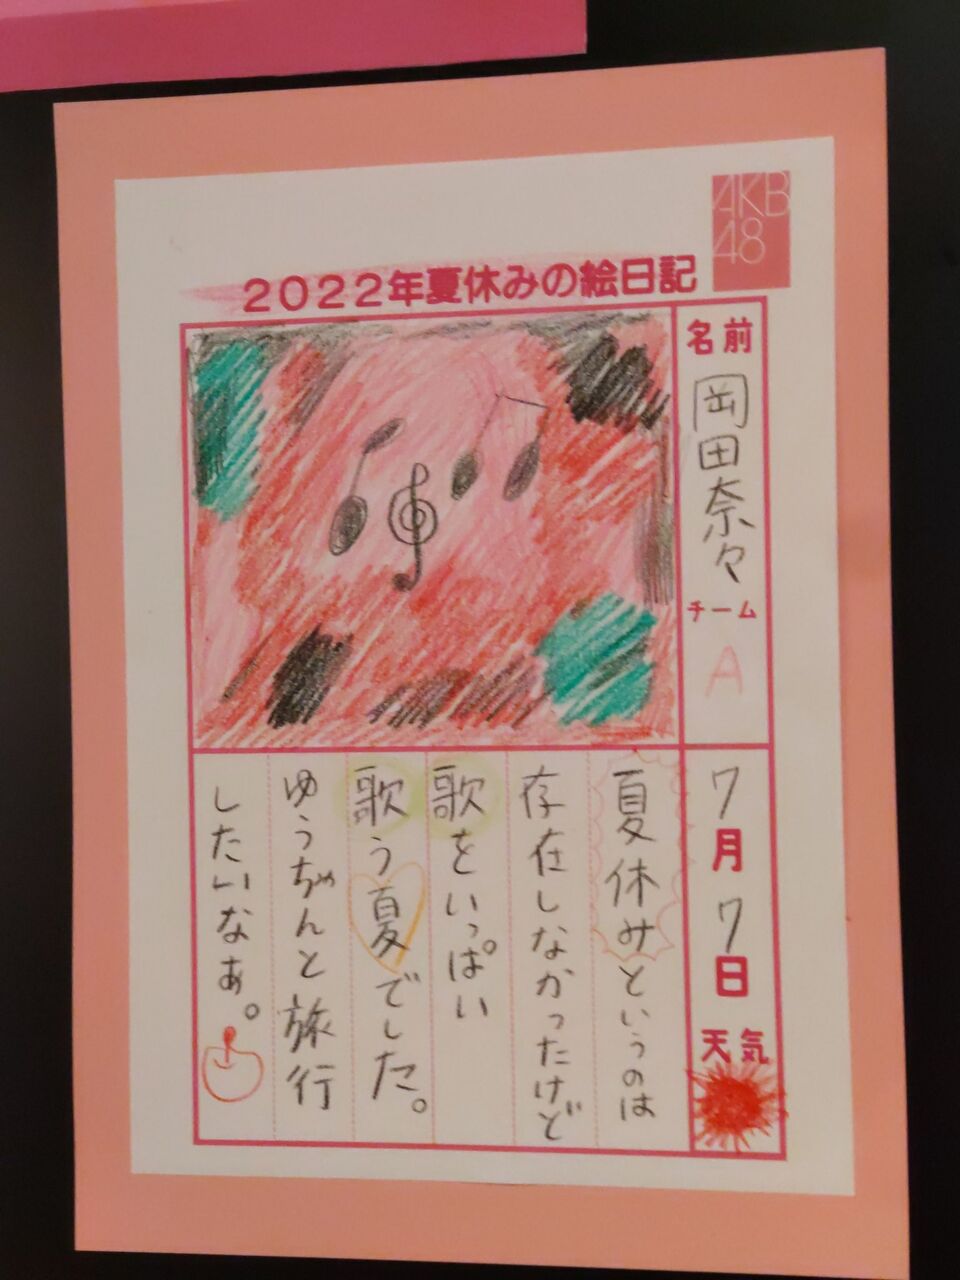 AKB
48
2022年夏休みの絵日記
名前
岡田奈々
チーム
A
7月7日
天気
夏休みというのは
存在しなかったけど
歌をいっぱい
歌う夏でした。
ゆうちゃんと旅行
したいなあ。